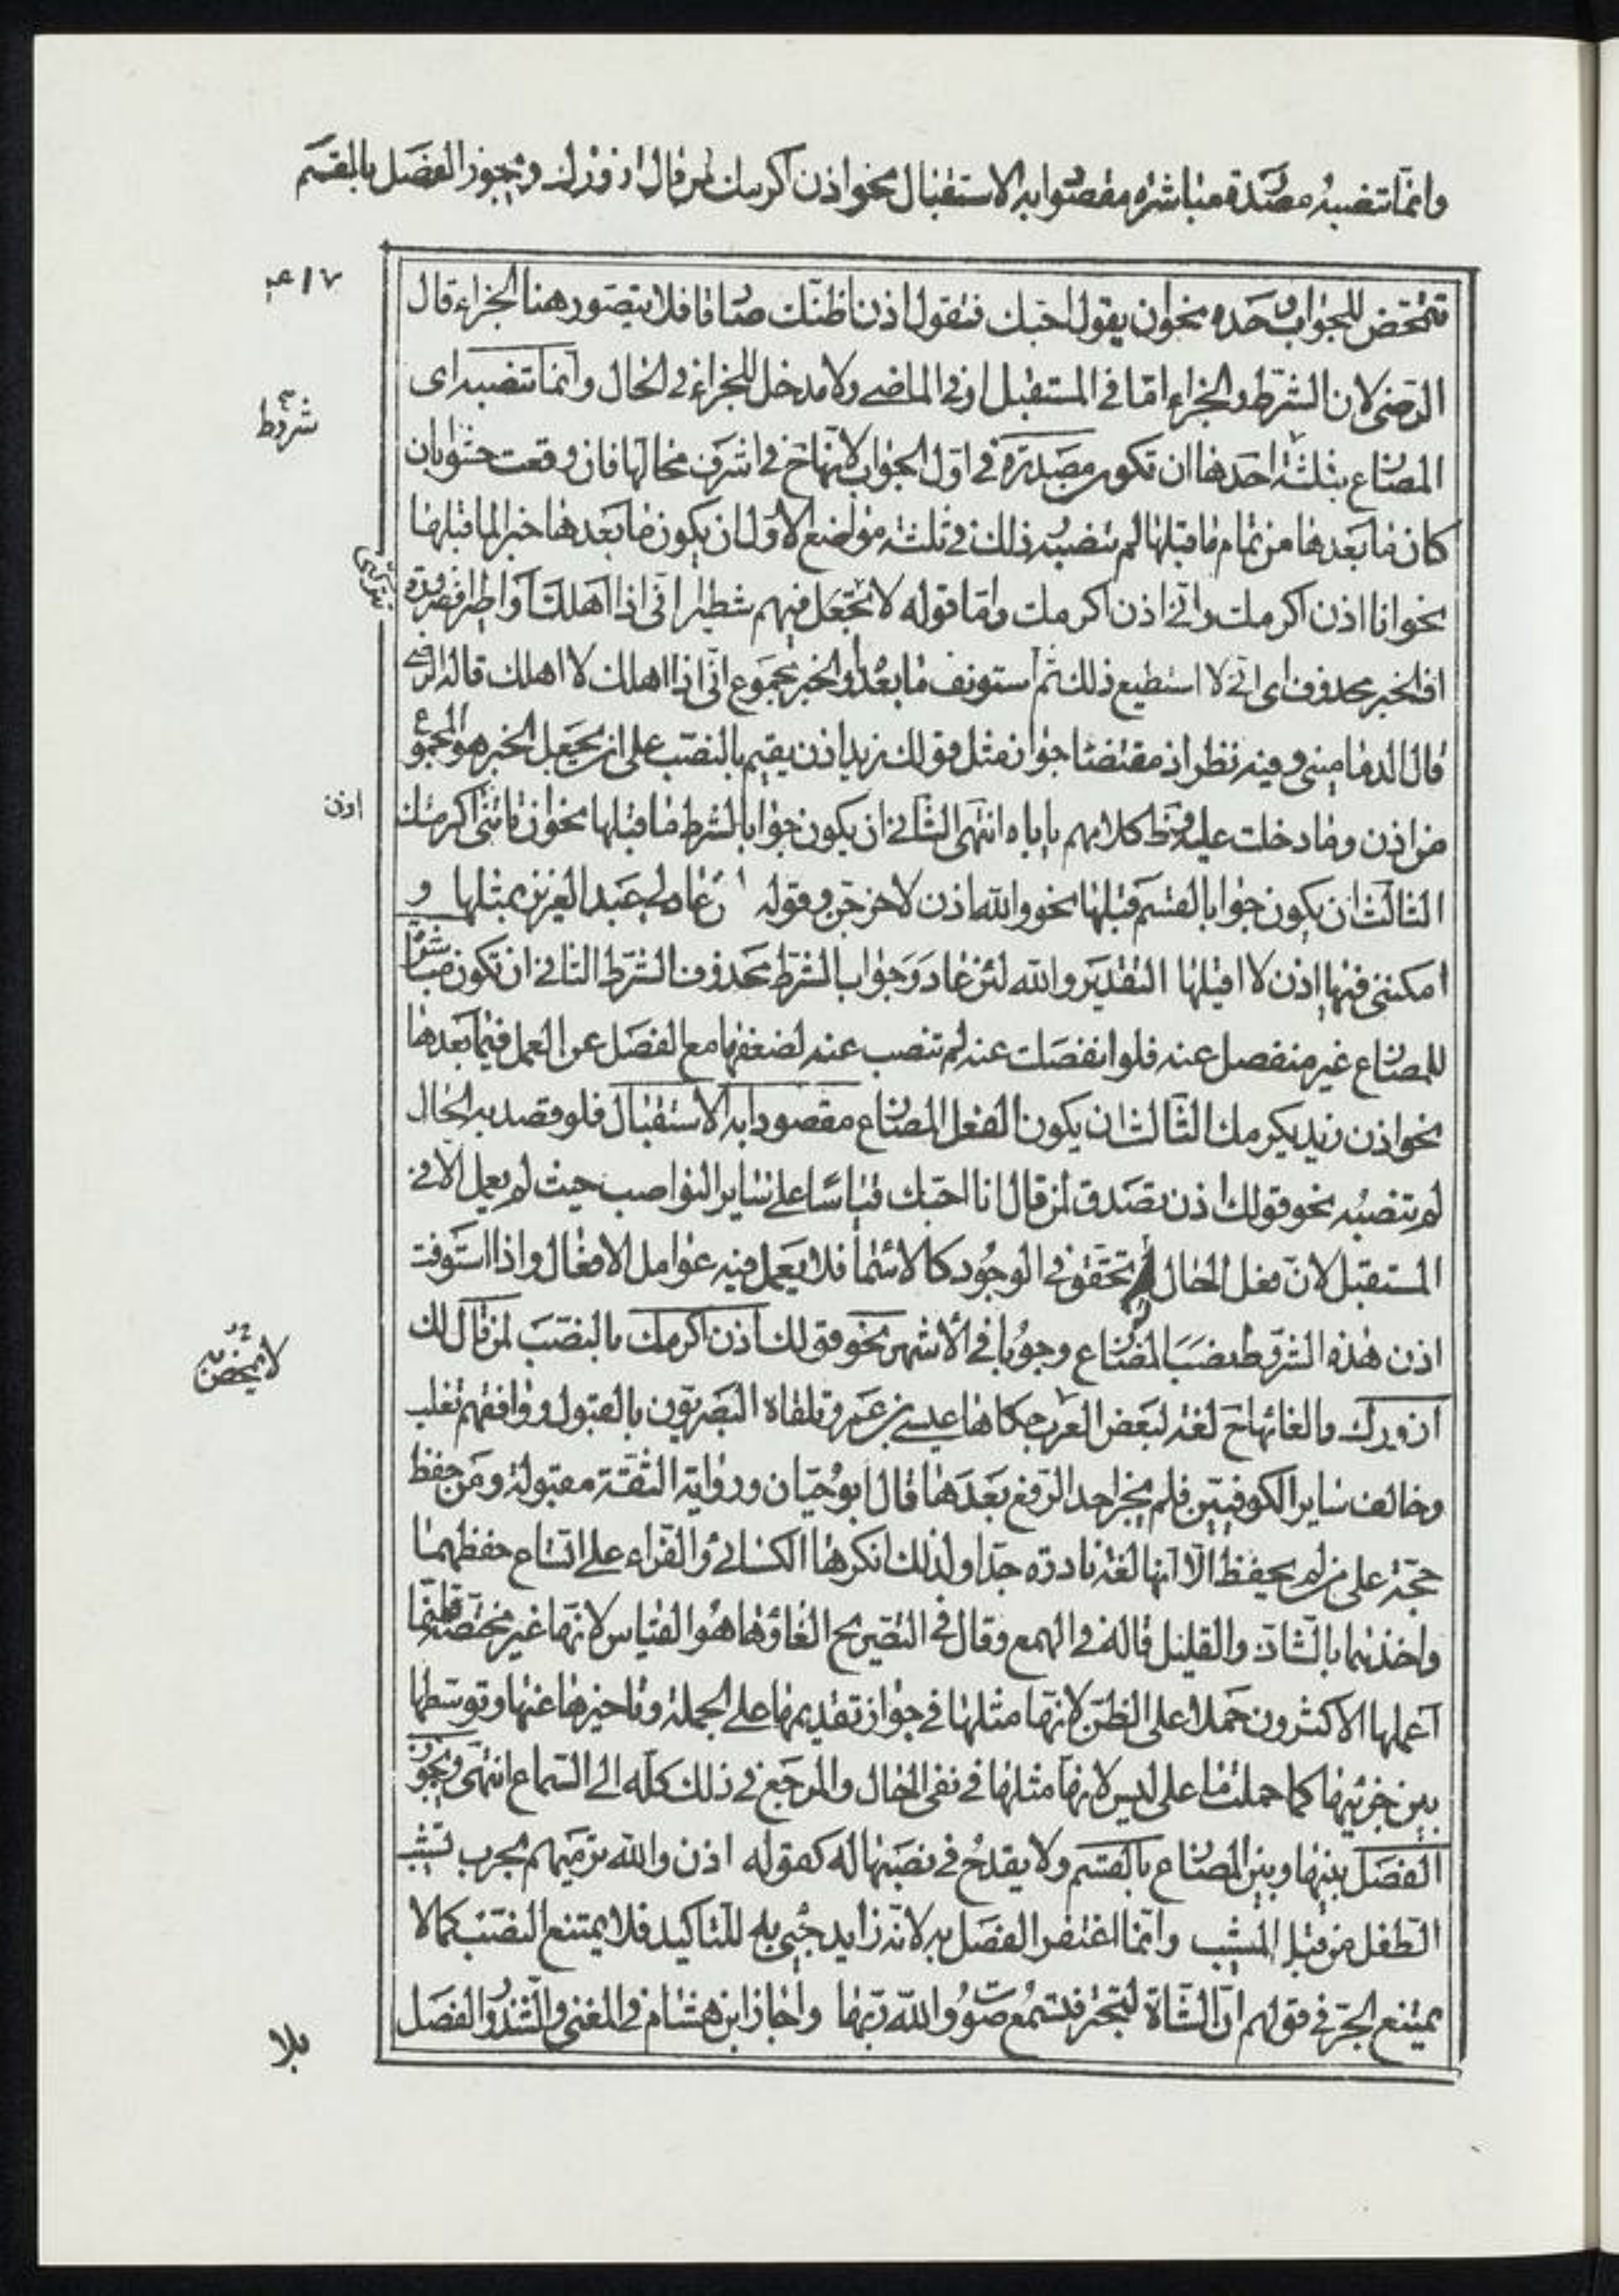 وانما تنصبه مصدرة مباشرة مقصودا به الاستقبال نحو اذن اكرمك لمن قال ازورك ويجوز الفصل بالقسم
فتمحض للجواب وحده نحو ان يقول احبك فتقول اذن اظنك صادقا فلا يتصور هنا الجزاء قال
الرضى لان الشرط والجزاء اما فى المستقبل او فى الماضى ولا مدخل للجزاء فى الحال وانما تنصبه اى
شروط
المضارع بثلثة احدها ان تكون مصدرة فى اول الجواب لانها ح فى اشرف محالها فان وقعت حشوا بان
كان ما بعدها من تمام ما قبلها لم تنصبه وذلك فى ثلثة مواضع الاول ان يكون ما بعدها خبرا لما قبلها
نحو انا اذن اكرمك وانى اذن اكرمك واما قوله لا تجعل فيهم شطيرا انى اذا اهلك او اطيرا فضرورة
او الخبر محذوف اى انى لا استطيع ذلك ثم استونف ما بعده او الخبر مجموع انى اذا اهلك لا اهلك قاله الرضى
قال الدمامينى وفيه نظر اذ مقتضاه جواز مثل قولك زيد اذن يقيم بالنصب على ان يجعل الخبر هو المجموع
من اذن وما دخلت عليه وظ كلامهم ياباه انتهى الثانى ان يكون جوابا لشرط ما قبلها نحو ان تاتنى اكرمك
اذن
الثالث ان يكون جوابا لقسم قبلها نحو والله اذن لاخرجن وقوله لئن عاد لى عبد العزيز بمثلها و
امكننى فيها اذن لا اقيلها التقدير والله لئن عاد وجواب الشرط محذوف الشرط الثانى ان تكون مباشرة
للمضارع غير منفصل عنه فلو انفصلت عنه لم تنصب عنه لضعفها مع الفصل عن العمل فيما بعدها
نحو اذن زيد يكرمك الثالث ان يكون الفعل المضارع مقصودا به الاستقبال فلو قصد به الحال
لم تنصبه نحو قولك اذن تصدق لمن قال انا احبك قياسا على ساير النواصب حيث لم يعمل الا فى
المستقبل لان فعل الحال له تحقق فى الوجود كالاسما فلا يعمل فيه عوامل الافعال واذا استوفت
اذن هذه الشروط نصب المضارع وجوبا فى الاشهر نحو قولك اذن اكرمك بالنصب لمن قال لك
ازورك والغائها ح لغة لبعض العرب حكاها عيسى بن عمر وتلقاه البصريون بالقبول ووافقهم ثعلب
وخالف ساير الكوفيين فلم يجز احد الرفع بعدها قال ابو حيان ورواية الثقة مقبولة ومن حفظ
حجة على من لم يحفظ الا انها لغة نادرة جدا ولذلك انكرها الكسائى والفراء على اتساع حفظهما
واخذهما بالشاذ والقليل قاله فى الهمع وقال فى التصريح الغاؤها هو القياس لانها غير مختصة وانما
اعملها الاكثرون حملا على الظن لانها مثلها فى جواز تقديمها على الجملة وتاخيرها عنها وتوسطها
بين جزئيها كما حملت ما على ليس لانها مثلها فى نفى الحال والمرجع فى ذلك كله الى السماع انتهى ويجوز
الفصل بينها وبين المضارع بالقسم ولا يقدح فى نصبها له كقوله اذن والله نرميهم بحرب تشيب
الطفل من قبل المشيب وانما اغتفر الفصل به لانه زايد جىء به للتاكيد فلا يمتنع النصب كما لا
يمتنع الجر فى قولهم ان الشاة لتجتر فتسمع صوت والله ربها واجاز ابن هشام فى المغنى والشذور الفصل
بلا